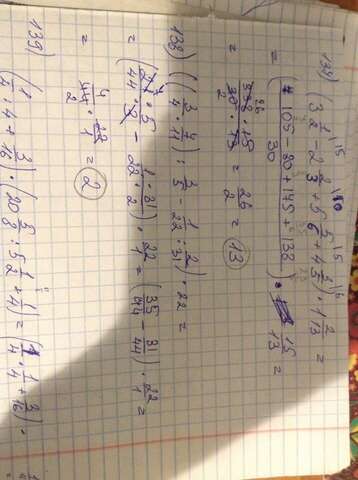 137) (3 1/2 - 2 2/3 + 5 5/6 + 4 3/5) · 1 2/13 =
= (105 - 80 + 175 + 138)/30 · 15/13 =
= 338 · 15 / 30 · 13 = 26/2 = 13
138) ((3/4 · 7/11) : 3/5 - 1/22 : 2/31) · 22 =
= (21 · 5 / 44 · 3 - 1 · 31 / 22 · 2) · 22/1 = (35/44 - 31/44) · 22/1 =
= 4/44 · 22/1 = 2
139) (1/4 · 4 + 3/16) · (20 5/8 : 5 1/2 + 1/4) =